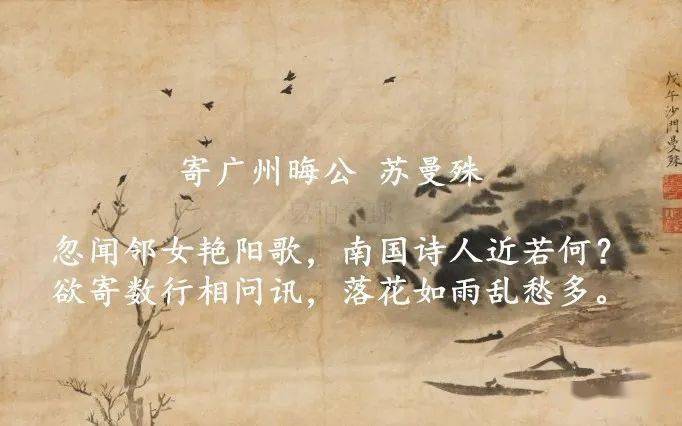 寄广州晦公 苏曼殊
忽闻邻女艳阳歌，南国诗人近若何？
欲寄数行相问讯，落花如雨乱愁多。
戊午沙門曼殊